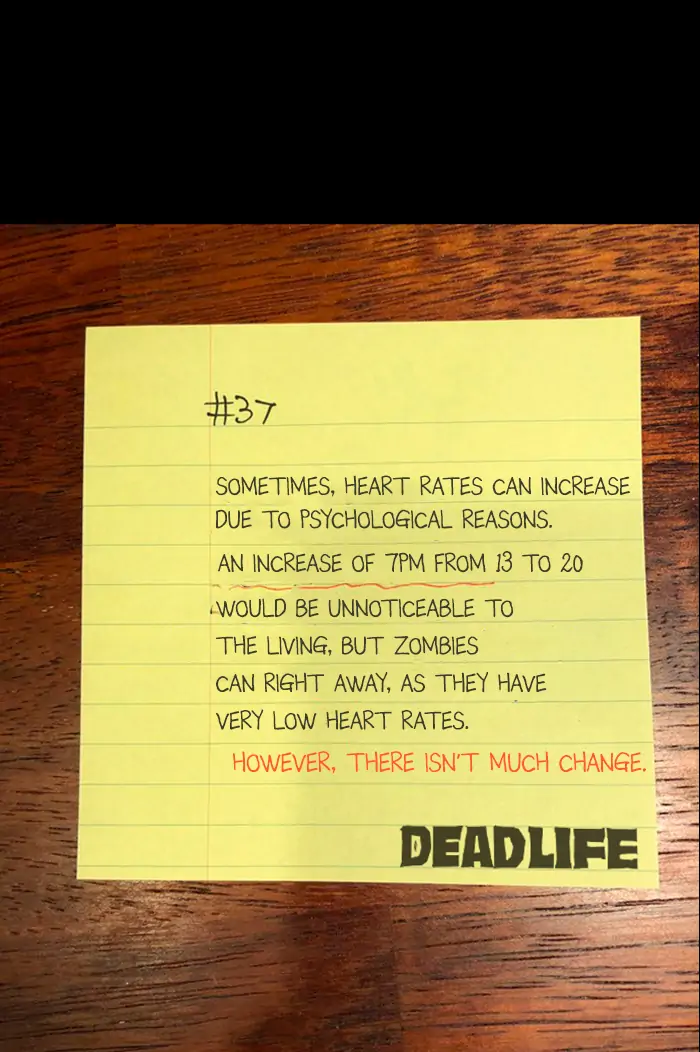 #37
SOMETIMES, HEART RATES CAN INCREASE
DUE TO PSYCHOLOGICAL REASONS.
AN INCREASE OF 7PM FROM 13 TO 20
WOULD BE UNNOTICEABLE TO
THE LIVING, BUT ZOMBIES
CAN RIGHT AWAY, AS THEY HAVE
VERY LOW HEART RATES.
HOWEVER, THERE ISN'T MUCH CHANGE.
DEADLIFE